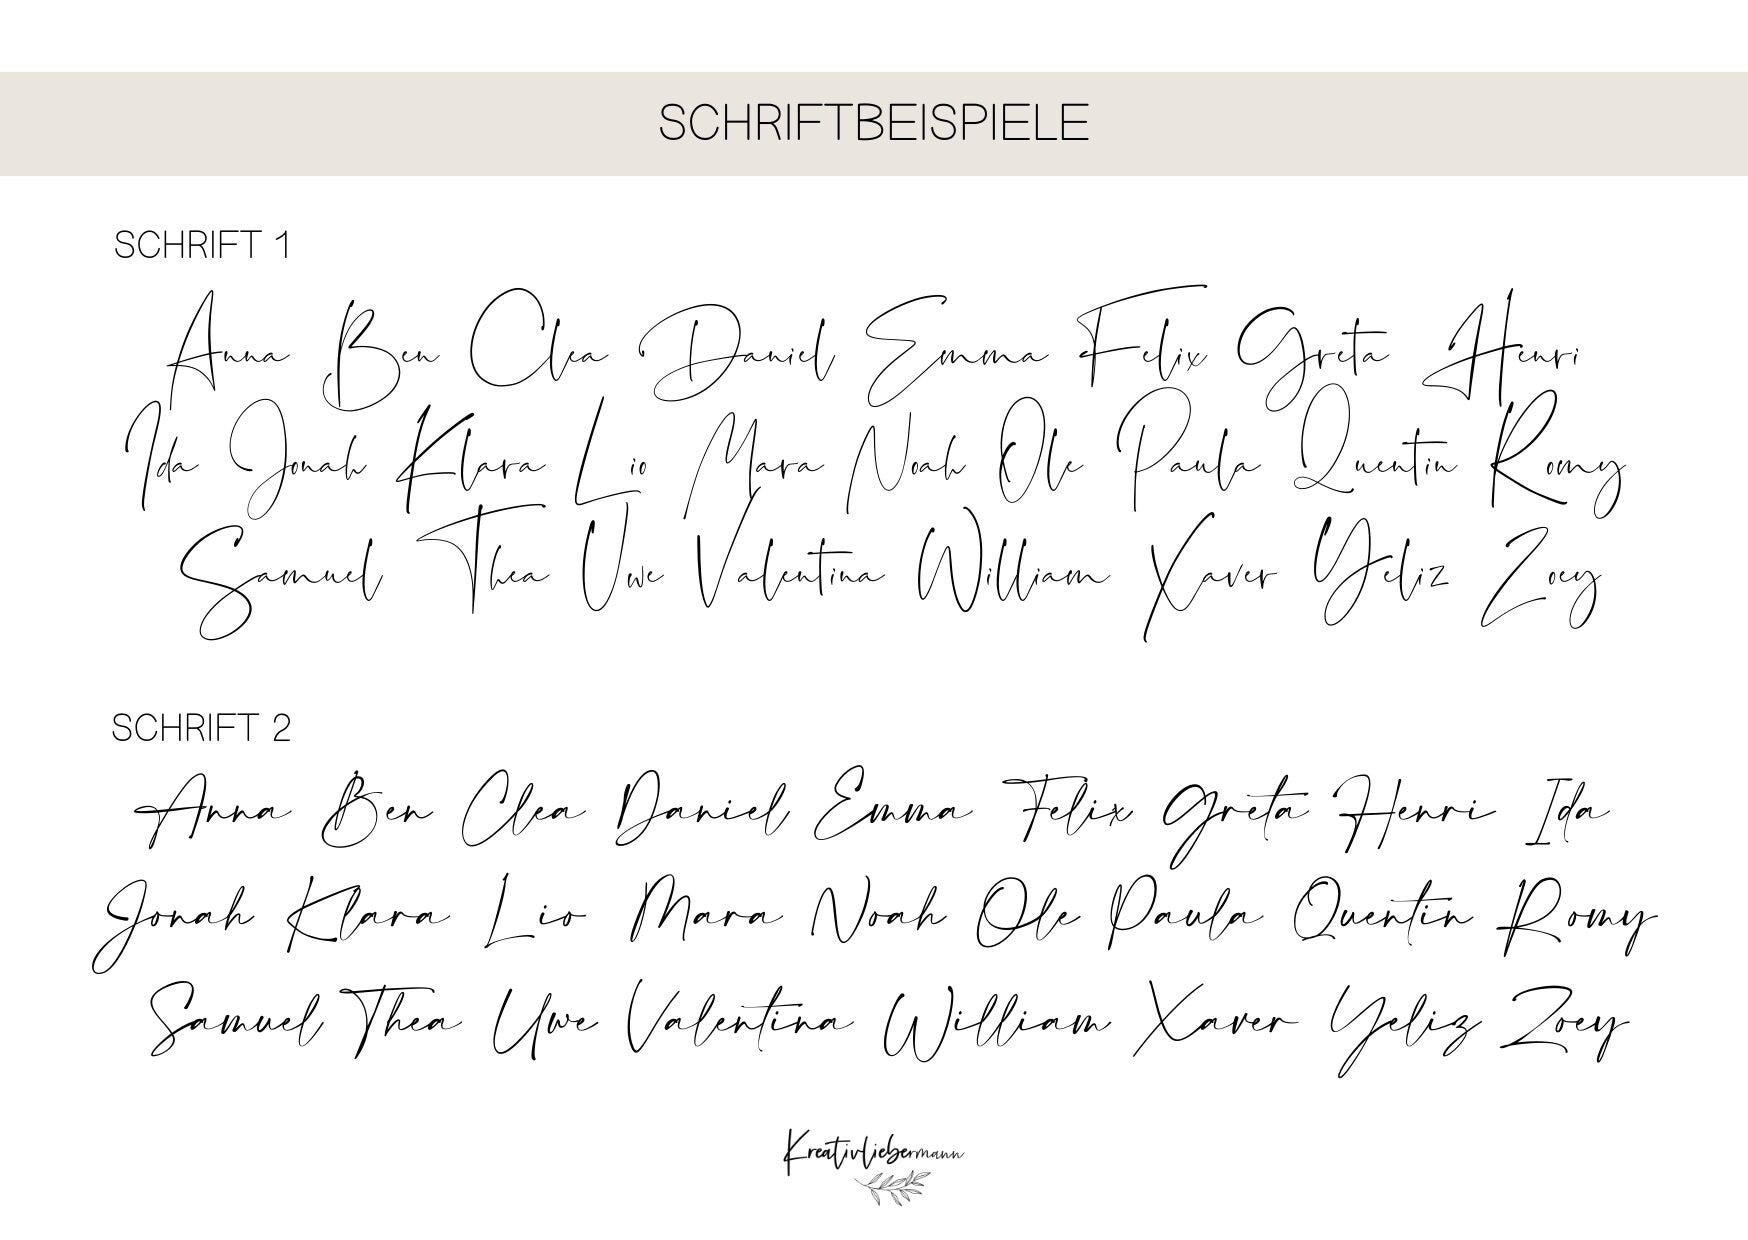 SCHRIFTBEISPIELE
SCHRIFT 1
Anna Ben Clea Daniel Emma Felix Greta Henri
Ida Jonah Klara Lio Mara Noah Ole Paula Quentin Romy
Samuel Thea Uwe Valentina William Xaver Yeliz Zoey
SCHRIFT 2
Anna Ben Clea Daniel Emma Felix Greta Henri Ida
Jonah Klara Lio Mara Noah Ole Paula Quentin Romy
Samuel Thea Uwe Valentina William Xaver Yeliz Zoey
Kreativliebermann